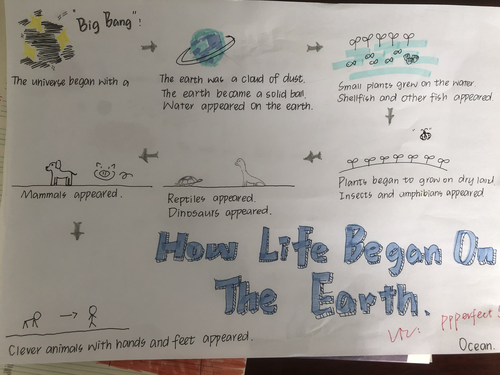 "Big Bang"!
The universe began with a
The earth was a cloud of dust.
The earth became a solid ball.
Water appeared on the earth.
Small plants grew on the water.
Shellfish and other fish appeared.
Plants began to grow on dry land
Insects and amphibians appeared
Reptiles appeared.
Dinosaurs appeared.
Mammals appeared.
Clever animals with hands and feet appeared.
How Life Began On
The Earth.
PPPerfect!
Ocean.